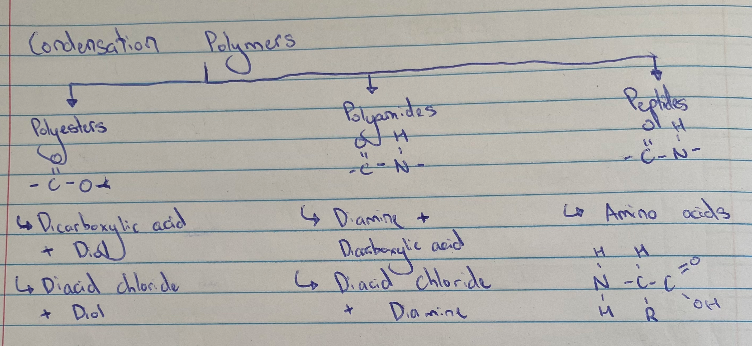 Condensation Polymers
Polyesters
O
-C-O-
↳ Dicarboxylic acid
+ Diol
↳ Diacid chloride
+ Diol
Polyamides
O H
-C-N-
↳ Diamine +
Diarboxylic acid
↳ Diacid chloride
+ Diamine
Peptides
O H
-C-N-
↳ Amino acids
H H
N-C-C=O
H R OH